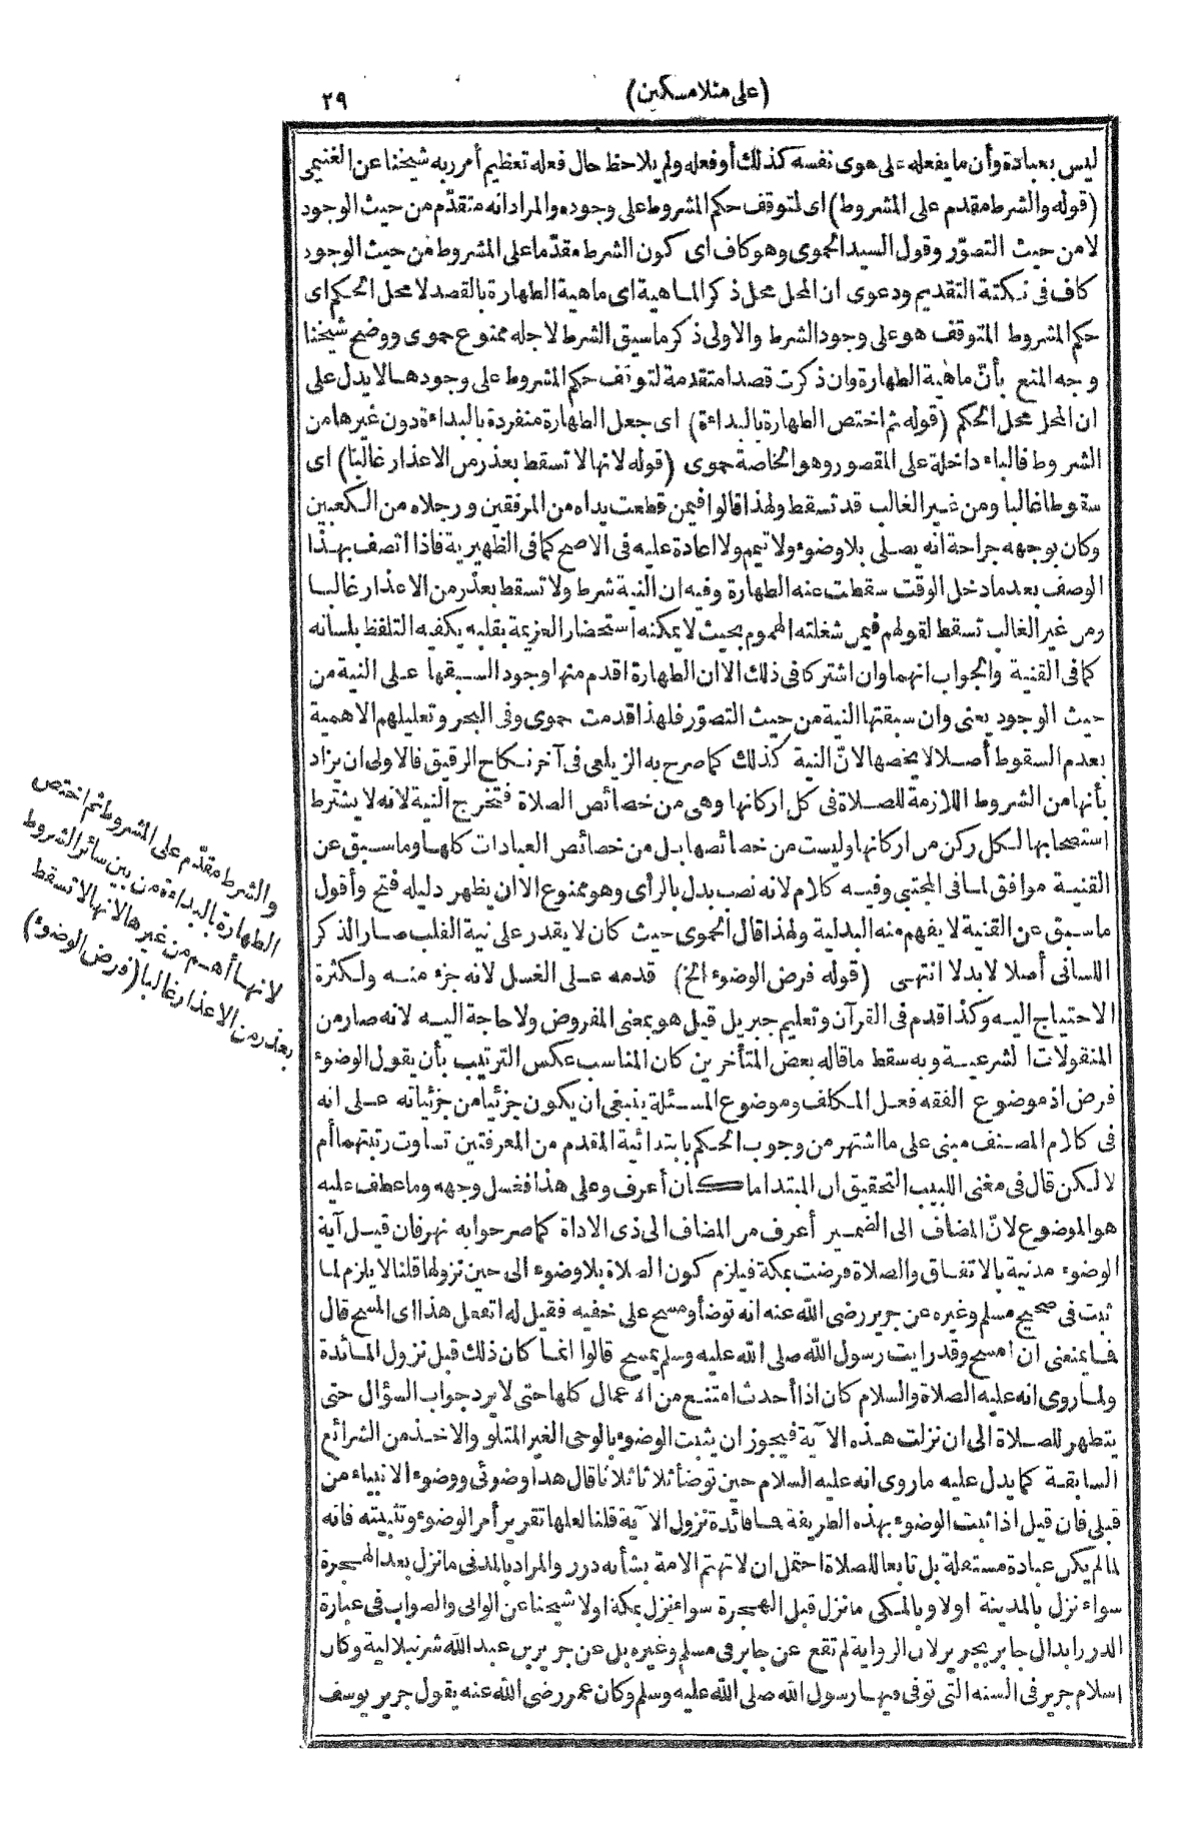 (على منلا مسكين)
٢٩
ليس بعبادة وأن ما يفعله على هوى نفسه كذلك أو فعله ولم يلاحظ حال فعله تعظيم أمر ربه شيخنا عن الغنيمى
(قوله والشرط مقدم على المشروط) اى لتوقف حكم المشروط على وجوده والمراد انه متقدّم من حيث الوجود
لا من حيث التصوّر وقول السيد الحموى وهو كاف اى كون الشرط مقدّما على المشروط من حيث الوجود
كاف فى نكتة التقديم ودعوى ان المحل محل ذكر الماهية اى ماهية الطهارة بالقصد لا محل الحكم اى
حكم المشروط المتوقف هو على وجود الشرط والاولى ذكر ما سيق الشرط لاجله ممنوع حموى ووضح شيخنا
وجه المنع بأنّ ماهية الطهارة وان ذكرت قصدا متقدمة لتوقف حكم المشروط على وجودها لا يدل على
ان المحل محل الحكم (قوله ثم اختص الطهارة بالبداءة) اى جعل الطهارة منفردة بالبداءة دون غيرها من
الشروط فالباء داخلة على المقصور وهو الخاصة حموى (قوله لانها لا تسقط بعذر من الاعذار غالبا) اى
سقوطا غالبا ومن غير الغالب قد تسقط ولهذا قالوا فيمن قطعت يداه من المرفقين ورجلاه من الكعبين
وكان بوجهه جراحة انه يصلى بلا وضوء ولا تيمم ولا اعادة عليه فى الاصح كما فى الظهيرية فاذا اتصف بهذا
الوصف بعد ما دخل الوقت سقطت عنه الطهارة وفيه ان النية شرط ولا تسقط بعذر من الاعذار غالبا
ومن غير الغالب تسقط لقولهم فيمن شغلته الهموم بحيث لا يمكنه استحضار العزيمة بقلبه يكفيه التلفظ بلسانه
كما فى القنية والجواب انهما وان اشتركا فى ذلك الا ان الطهارة اقدم منها وجودا لسبقها على النية من
حيث الوجود يعنى وان سبقتها النية من حيث التصوّر فلهذا قدمت حموى وفى البحر وتعليلهم الاهمية
بعدم السقوط أصلا لا يخصها لانّ النية كذلك كما صرح به الزيلعى فى آخر نكاح الرقيق فالاولى ان يزاد
بأنها من الشروط اللازمة للصلاة فى كل اركانها وهى من خصائص الصلاة فتخرج النية لانه لا يشترط
استصحابها لكل ركن من اركانها وليست من خصائصها بل من خصائص العبادات كلها وما سبق عن
القنية موافق لما فى المجتبى وفيه كلام لانه نصب بدل بالرأى وهو ممنوع الا ان يظهر دليله فتح وأقول
ما سبق عن القنية لا يفهم منه البدلية ولهذا قال الحموى حيث كان لا يقدر على نية القلب صار الذكر
اللسانى أصلا لا بدلا انتهى (قوله فرض الوضوء الخ) قدمه على الغسل لانه جزء منه ولكثرة
الاحتياج اليه وكذا قدم فى القرآن وتعليم جبريل قيل هو بمعنى المفروض ولا حاجة اليه لانه صار من
المنقولات الشرعية وبه سقط ما قاله بعض المتأخرين كان المناسب عكس الترتيب بأن يقول الوضوء
فرض اذ موضوع الفقه فعل المكلف وموضوع المسئلة ينبغى ان يكون جزئيا من جزئياته على انه
فى كلام المصنف مبنى على ما اشتهر من وجوب الحكم بابتدائية المقدم من المعرفتين تساوت رتبتهما أم
لا لكن قال فى مغنى اللبيب التحقيق ان المبتدا ما كان أعرف وعلى هذا فغسل وجهه وما عطف عليه
هو الموضوع لانّ المضاف الى الضمير أعرف من المضاف الى ذى الاداة كما صرحوا به نهر فان قيل آية
الوضوء مدنية بالاتفاق والصلاة فرضت بمكة فيلزم كون الصلاة بلا وضوء الى حين نزولها قلنا لا يلزم لما
ثبت فى صحيح مسلم وغيره عن جرير رضى الله عنه انه توضأ ومسح على خفيه فقيل له اتفعل هذا اى المسح قال
فما يمنعنى ان امسح وقد رايت رسول الله صلى الله عليه وسلم يمسح قالوا انما كان ذلك قبل نزول المائدة
ولما روى انه عليه الصلاة والسلام كان اذا أحدث امتنع من الاعمال كلها حتى لا يرد جواب السؤال حتى
يتطهر للصلاة الى ان نزلت هذه الآية فيجوز ان يثبت الوضوء بالوحى الغير المتلو والاخذ من الشرائع
السابقة كما يدل عليه ما روى انه عليه السلام حين توضأ ثلاثا ثلاثا قال هذا وضوئى ووضوء الانبياء من
قبلى فان قيل اذا ثبت الوضوء بهذه الطريقة فما فائدة نزول الآية قلنا لعلها تقرير أمر الوضوء وتثبيته فانه
لما لم يكن عبادة مستقلة بل تابعا للصلاة احتمل ان لا تهتم الامة بشأنه درر والمراد بالمدنى ما نزل بعد الهجرة
سواء نزل بالمدينة اولا وبالمكى ما نزل قبل الهجرة سواء نزل بمكة اولا شيخنا عن الوانى والصواب فى عبارة
الدرر ابدال جابر بجرير لان الرواية لم تقع عن جابر فى مسلم وغيره بل عن جرير بن عبد الله شرنبلالية وكان
اسلام جرير فى السنه التى توفى فيها رسول الله صلى الله عليه وسلم وكان عمر رضى الله عنه يقول جرير يوسف
والشرط مقدّم على المشروط ثم اختص
الطهارة بالبداءة من بين سائر الشروط
لانها أهم من غيرها لانها لا تسقط
بعذر من الاعذار غالبا (فرض الوضوء)